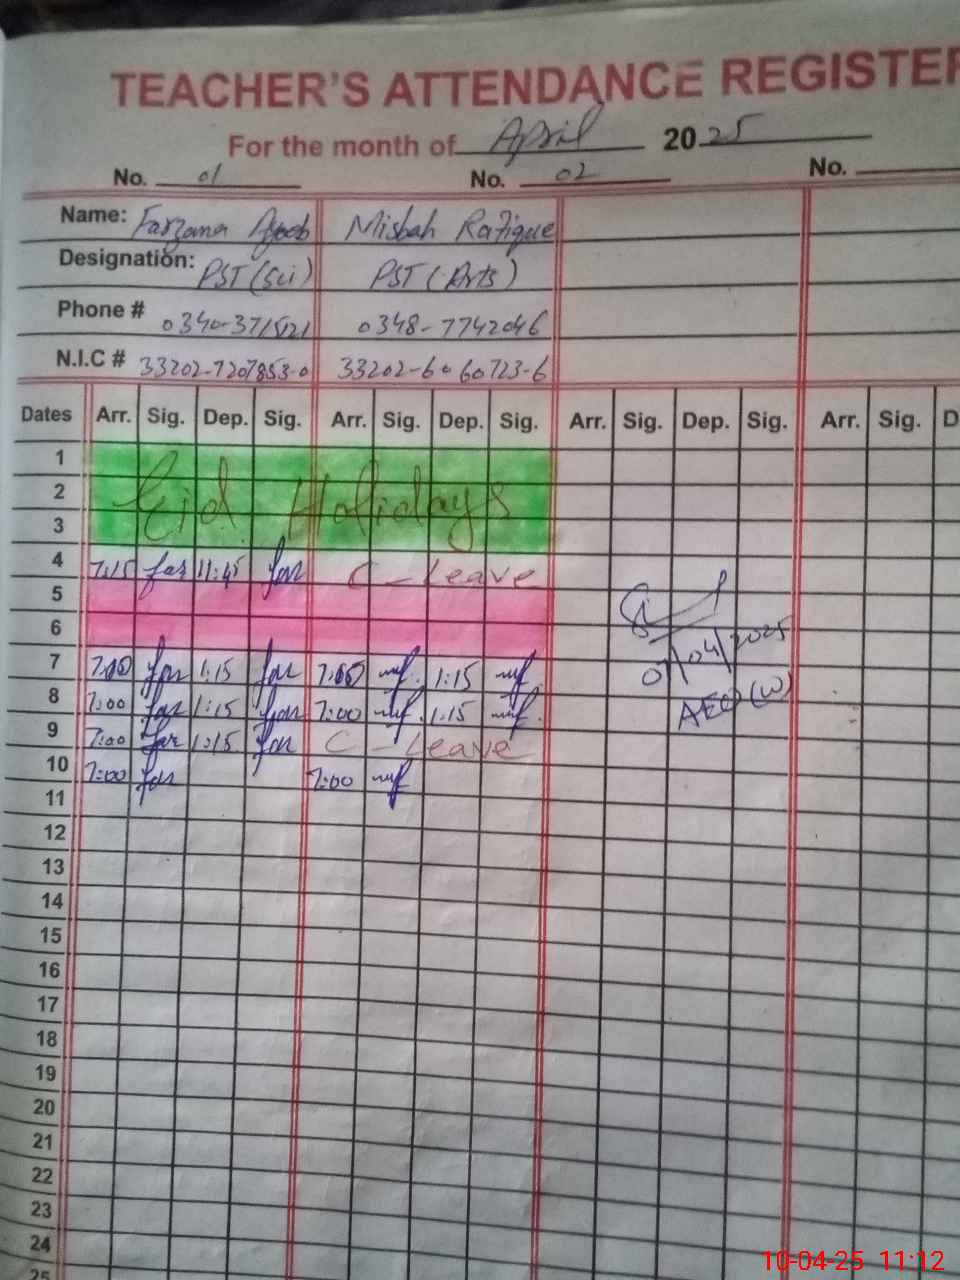 TEACHER'S ATTENDANCE REGISTER
For the month of April 2025
No. 01 No. 02 No.
Name: Farzana Ayoob Misbah Rafique
Designation: PST (Sci) PST (Arts)
Phone # 0348-7742046
N.I.C # 33202-7207853-0 33202-6060723-6
Dates Arr. Sig. Dep. Sig. Arr. Sig. Dep. Sig. Arr. Sig. Dep. Sig. Arr. Sig. D
1
2 Eid Holidays
3
4 7:15 far 11:45 far C-Leave
5
6
7 7:00 far 1:15 far 7:00 mf 1:15 mf
07/04/2025
8 7:00 far 1:15 far 7:00 mf 1:15 mf
AEO (W)
9 7:00 far 1:15 far C-Leave
10 7:00 far 7:00 mf
11
12
13
14
15
16
17
18
19
20
21
22
23
24
25
10-04-25 11:12